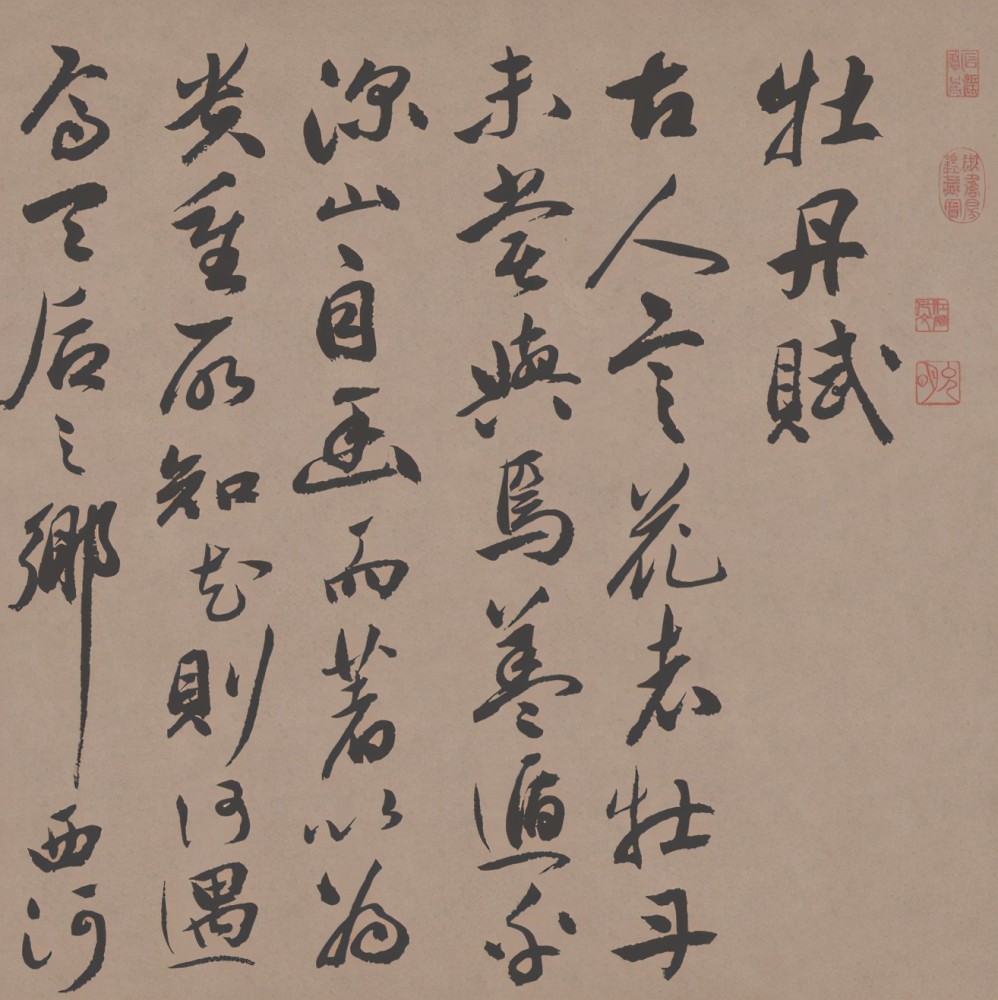 允明
牡丹賦
古人言花者牡丹
未嘗與焉蓋遁乎
深山自幽而著以為
貴重所知花則何遇
焉天后之鄉西河